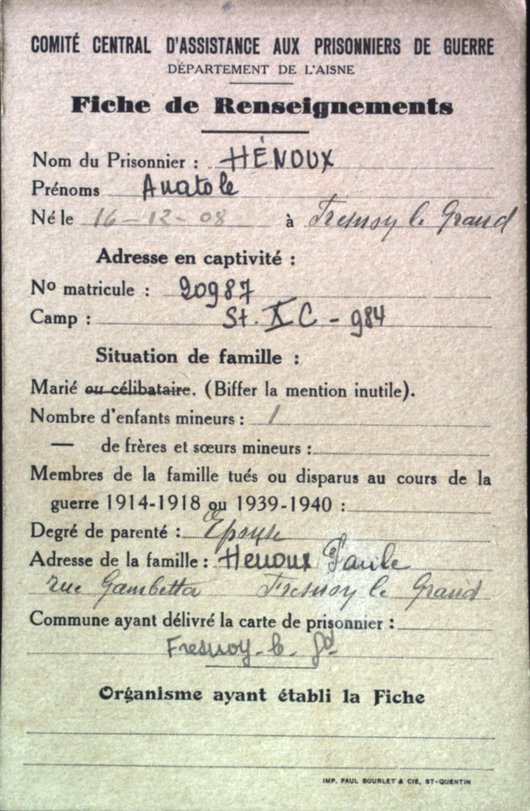 COMITÉ CENTRAL D'ASSISTANCE AUX PRISONNIERS DE GUERRE
DÉPARTEMENT DE L'AISNE
Fiche de Renseignements
Nom du Prisonnier : HÉNOUX
Prénoms Anatole
Né le 16-12-08 à Fresnoy le Grand
Adresse en captivité :
No matricule : 20987
Camp : St. X C - 984
Situation de famille :
Marié ou célibataire. (Biffer la mention inutile).
Nombre d'enfants mineurs : 1
— de frères et sœurs mineurs :
Membres de la famille tués ou disparus au cours de la
guerre 1914-1918 ou 1939-1940 :
Degré de parenté : Epouse
Adresse de la famille : Henoux Paule
rue Gambetta Fresnoy le Grand
Commune ayant délivré la carte de prisonnier :
Fresnoy-le-Gd
Organisme ayant établi la Fiche
IMP. PAUL BOURLET & CIE, ST-QUENTIN